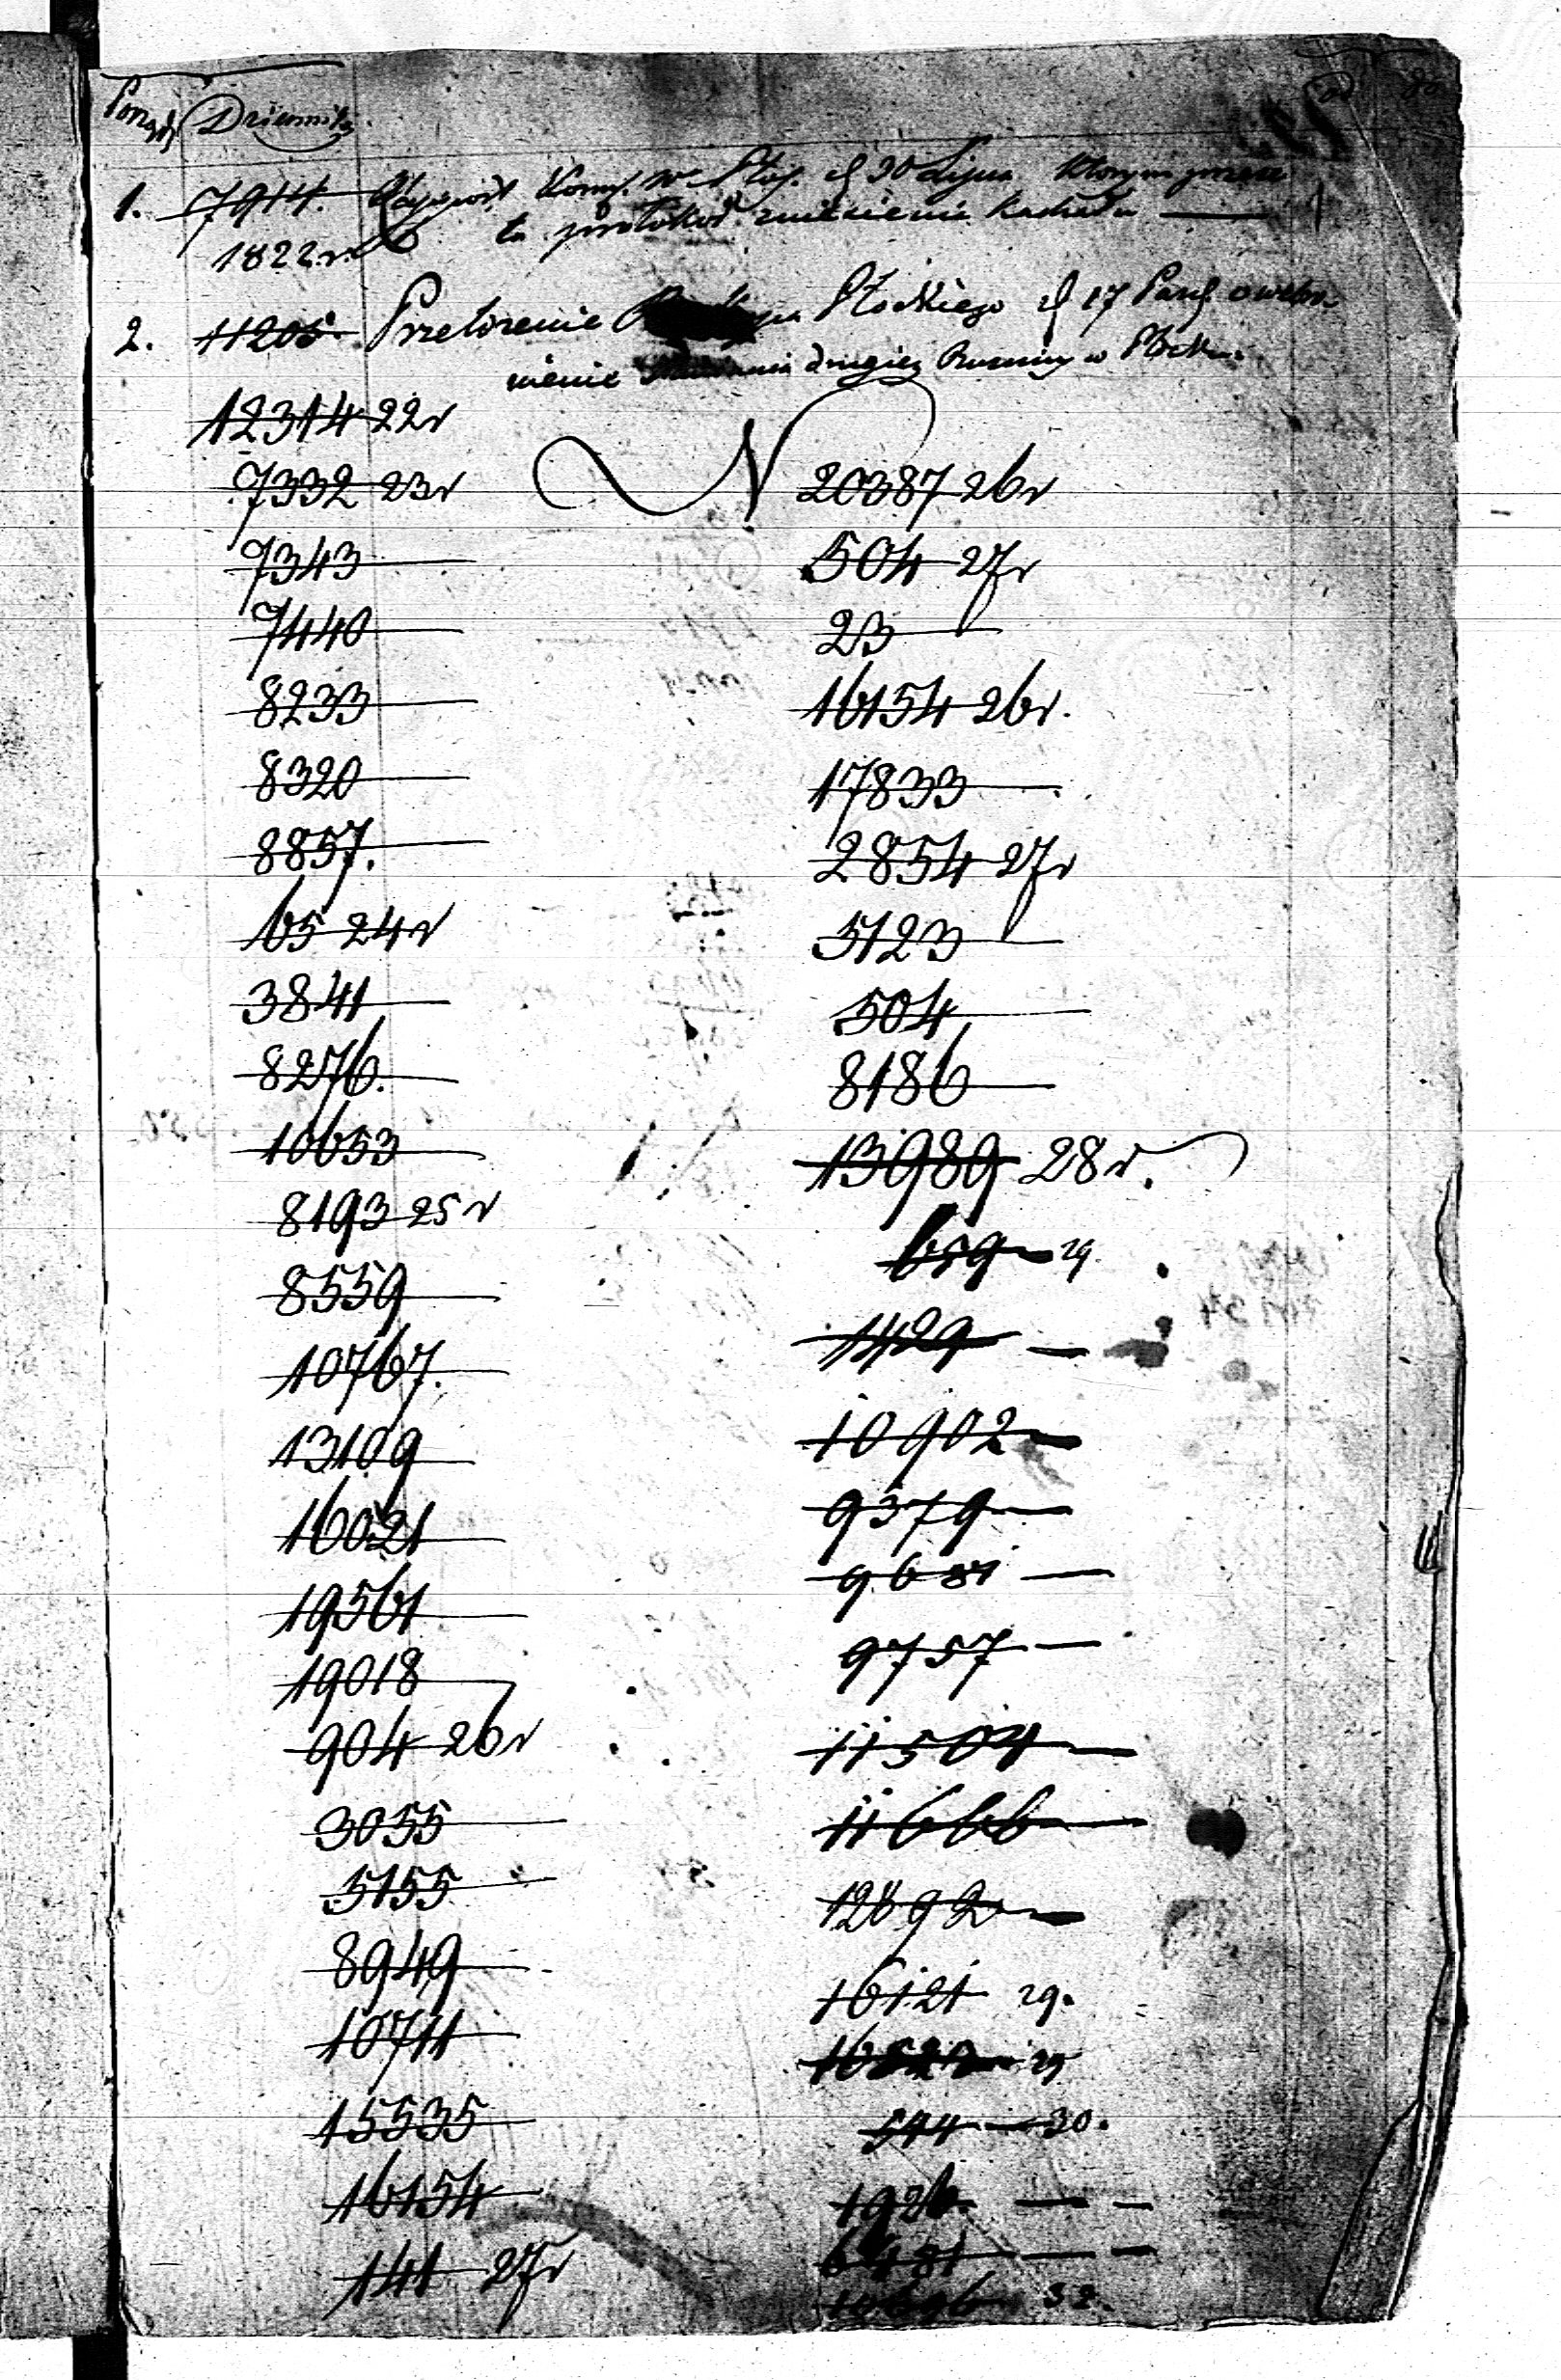 Porząd Dziennika
1. 7914. Kom. w d 30 Lipca którym przese
1822 r. ta protokół zniesienie Kahału
2. 11205. Przełożenie Płockiego d 17 Paźd
nienie drugiey Bożnicy w Płocku
12314 22 r
7332 23 r
7343
7440
8233
8320
8857.
65 24 r
3841
8276.
10653
8193 25 r
8559
10767.
13109
16021
19561
19018
904 26 r
3055
5155
8949
10711
15535
16154
141 27 r
N 20387 26 r
504 27 r
23
16154 26 r.
17833
2854 27 r
5123
504
8186
13989 28 r.
659 29.
1429
10902
9379
9681
9757
11504
11666
12892
16121 29.
29
544 30.
1926
6481
10696 32.